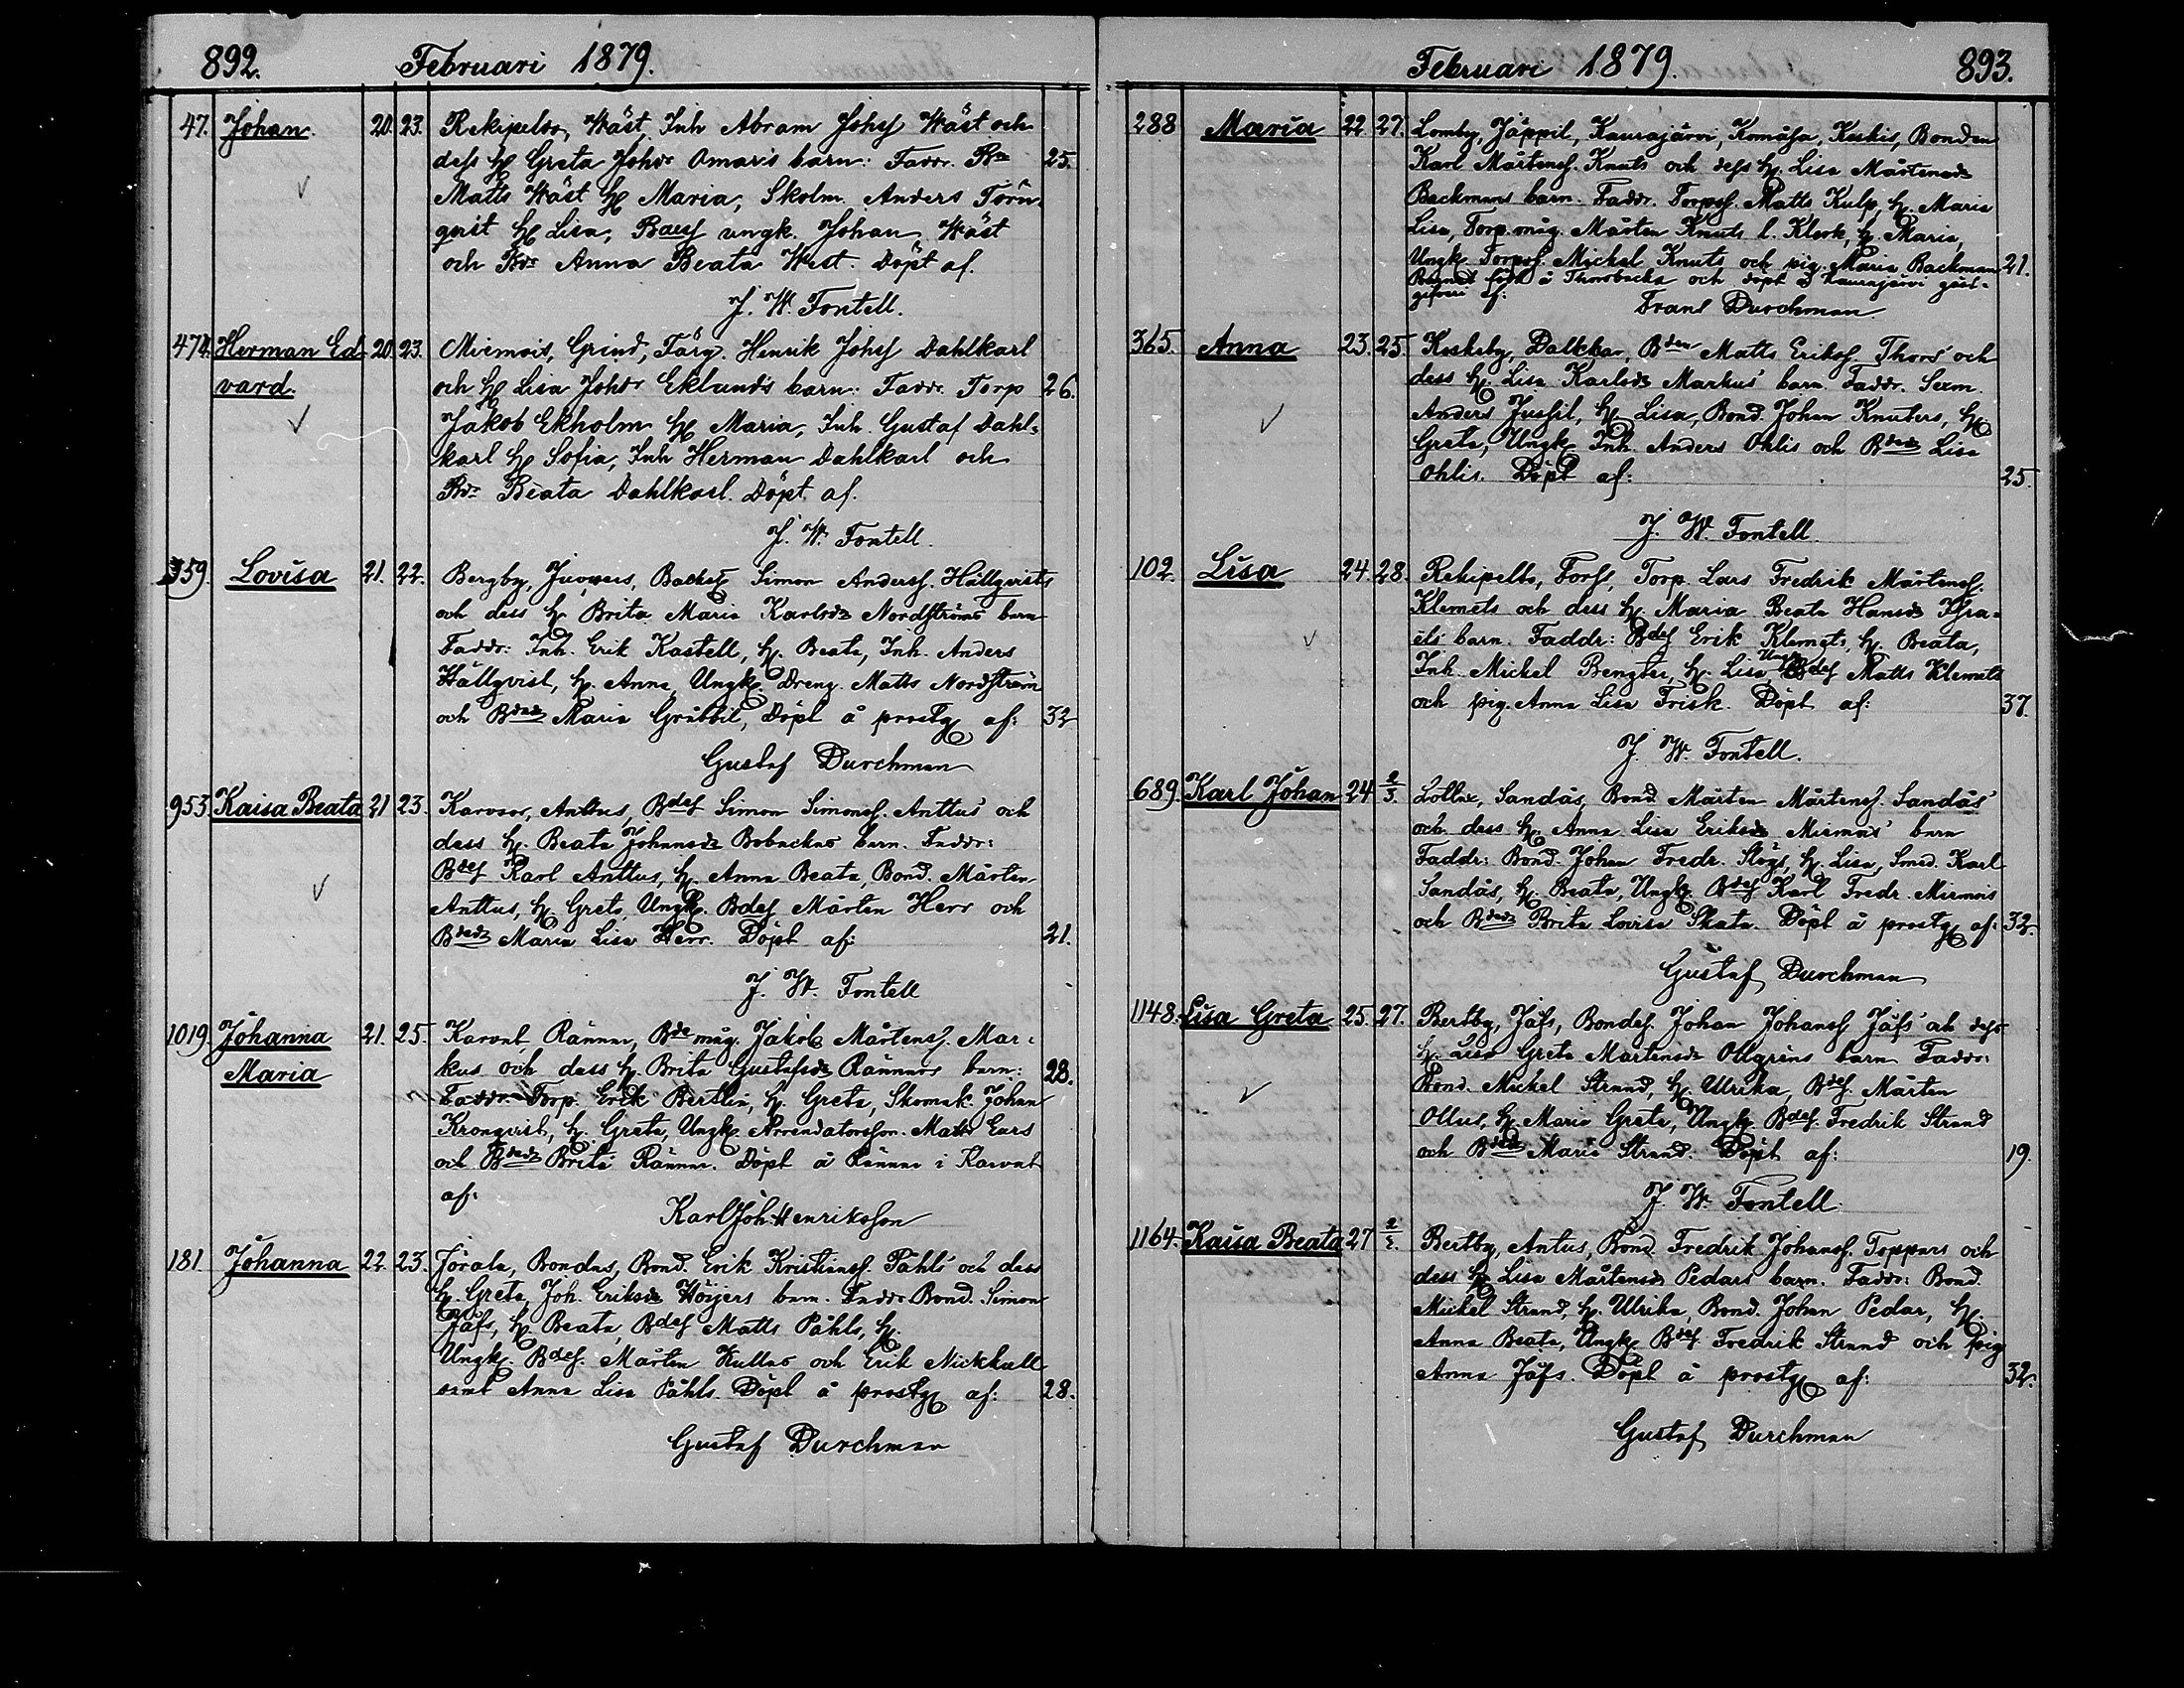 892. Februari 1879.
47. Johan. 20. 23. Rekipelto, Wäst, Inh Abram Johss Wäst och
dess H. Greta Johdr Omars barn: Faddr. Bn 25.
Matts Wäst H. Maria, Skolm. Anders Törn-
qvist H. Lisa, ungk. Johan Wäst
och Bdr Anna Beata West. Döpt af.
J. W. Fontell.
474. Herman Ed- 20. 23. Miemois, Grind, Färg. Henrik Johss Dahlkarl
vard. och H. Lisa Johdr Eklunds barn: Faddr. Torp 26.
Jakob Ekholm H. Maria, Inh. Gustaf Dahl-
karl H. Sofia, Inh Herman Dahlkarl och
Bdr Beata Dahlkarl. Döpt af.
J. W. Fontell.
959 Lovisa 21. 22. Bergby, Backst Simon Anderss. Hällqvists
och dess H. Brita Maria Karlsdr Nordströms barn
Faddr: Inh. Erik Kastell, H. Beata, Inh. Anders
Hällqvist, H. Anna, Ungk. Dreng. Matts Nordström
och Bdedr Maria Gräbbil, Döpt å prostg af: 32
Gustaf Durchman
953. Kaisa Beata 21 23. Karvsor, Anttus, Bdes Simon Simonss. Anttus och
dess H. Beata Johansdr Bobackas barn. Faddr:
Bdes Karl Anttus, H. Anna Beata, Bond. Mårten
Anttus, H. Greta, Ungk. Bdes Mårten Herr och
Bdedr Maria Lisa Herr. Döpt af: 21.
J. W. Fontell
1019. Johanna 21. 25. Karvat, Rännar, Bde måg. Jakob Mårtenss. Mar-
Maria kus och dess H. Brita Gustafsdr Rännars barn: 28.
Faddr. Torp. Erik Bertlin, H. Greta, Skomak. Johan
Kronqvist, H. Greta, Ungk. Arrendatorsson. Matts Ears
och Bdedr Brita Rännar. Döpt å Rännar i Karvat
af: Karl Joh. Henriksson
181. Johanna 22. 23. Jörala, Bondas, Bond. Erik Kristianss. Påhls och dess
H. Greta Joh. Eriksdr Höijers barn. Faddr. Bond. Simon
Jåfs, H. Beata, Bdes Matts Påhls, H.
Ungk. Bdes. Mårten Kullas och Erik Nickhall
samt Anna Lisa Påhls. Döpt å prostg af: 28.
Gustaf Durchman
Februari 1879. 893.
288 Maria 22 27. Lomby, Jäppil, Kaurajärvi, Komåsa, Keskis, Bonden
Karl Mårtenss. Knuts och dess H. Lisa Mårtensdr
Backmans barn. Faddr. Torpss. Matts Kulp, H. Maria
Lisa, Torp.måg. Mårten Knuts l. Klerk, H. Maria,
Ungk. Torpss. Mickel Knuts och pig. Maria Backman 21.
Barnet född å Thorsbacka och döpt å Kaurajärvi gäst-
gifveri af: Frans Durchman
365. Anna 23. 25. Keskeby, Dalkkar, Bden Matts Erikss. Thors och
dess H. Lisa Karlsdr Markus barn. Faddr. Sexm.
Anders Jussil, H. Lisa, Bond. Johan Knuters, H.
Greta, Ungk. Inh. Anders Ohlis och Bdedr Lisa
Ohlis. Döpt af: 25.
J. W. Fontell
102. Lisa 24 28. Rekipelto, Forss, Torp. Lars Fredrik Mårtenss.
Klemets och dess H. Maria Beata Hansdr Isra-
els barn. Faddr: Bdes Erik Klemets, H. Beata,
Inh. Mickel Bengtar, H. Lisa, Ungk Bdes Matts Klemets
och pig. Anna Lisa Frisk. Döpt af: 37.
J. W. Fontell.
689. Karl Johan 24 2/3. Lotlax, Sandås, Bond. Mårten Mårtenss. Sandås
och dess H. Anna Lisa Eriksdr Miemois barn
Faddr: Bond. Johan Fredr. Stögs, H. Lisa, Smed. Karl
Sandås, H. Beata, Ungk. Bdes Karl Fredr. Miemois
och Bdedr Brita Lovisa Skata. Döpt å prostg af: 32.
Gustaf Durchman
1148. Lisa Greta 25. 27. Bertby, Jåfs, Bondes. Johan Johanss Jåfs och dess
H. Lisa Greta Mårtensdr Ollgrens barn Faddr:
Bond. Mickel Strand, H. Ulrika, Bdes. Mårten
Ollus, H. Maria Greta, Ungk. Bdes. Fredrik Strand
och Bdedr Maria Strand. Döpt af: 19.
J. W. Fontell
1164. Kaisa Beata 27 Bertby, Antus, Bond Fredrik Johanss. Toppars och
dess H. Lisa Mårtensdr Pedars barn. Faddr: Bond.
Mickel Strand, H. Ulrika, Bond. Johan Pedar, H.
Anna Beata, Ungk. Bdes Fredrik Strand och pig
Anna Jåfs. Döpt å prostg af: 32.
Gustaf Durchman